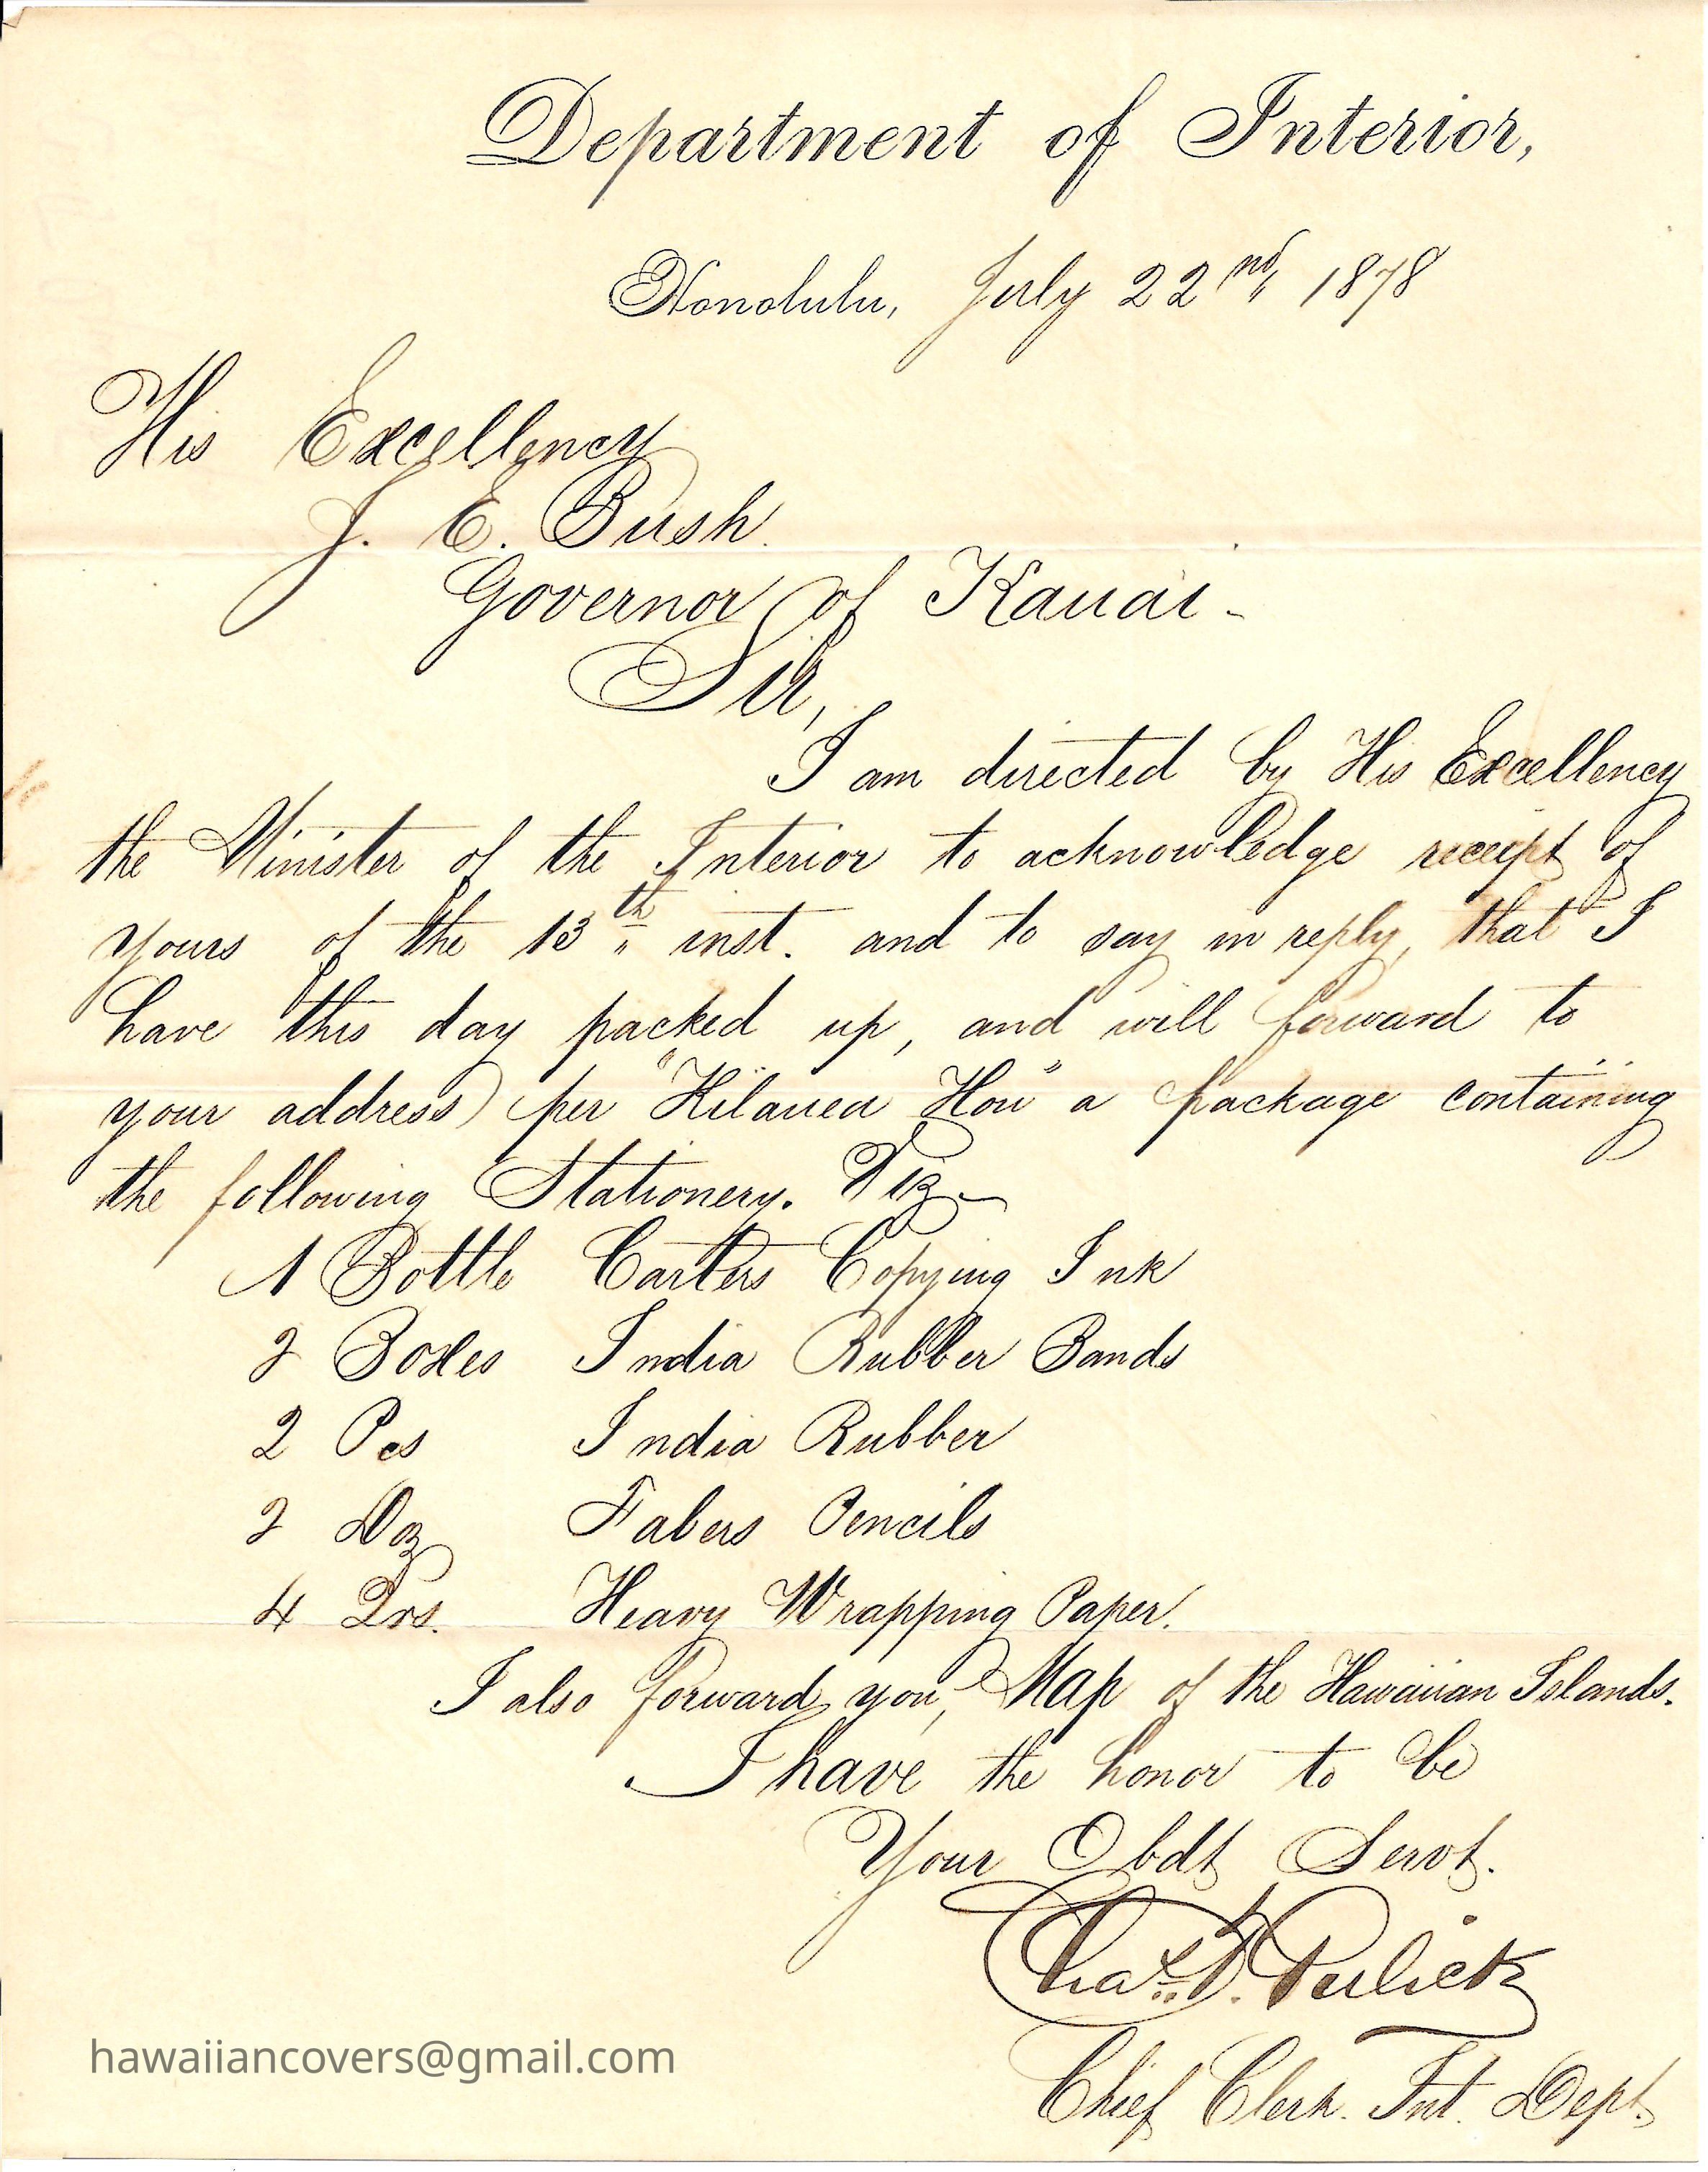 Department of Interior,
Honolulu, July 22nd, 1878
His Excellency
J. E. Bush.
Governor of Kauai -
Sir,
I am directed by His Excellency
the Minister of the Interior to acknowledge receipt of
yours of the 13th inst. and to say in reply, that I
have this day packed up, and will forward to
your address per "Kilauea Hou" a package containing
the following Stationery. Viz -
1 Bottle Carters Copying Ink
2 Boxes India Rubber Bands
2 Pcs India Rubber
2 Doz Fabers Pencils
4 Qrs. Heavy Wrapping Paper.
I also forward you, Map of the Hawaiian Islands.
I have the honor to be
Your Obdt Servt.
Chas. T. Gulick
Chief Clerk. Int. Dept.
hawaiiancovers@gmail.com